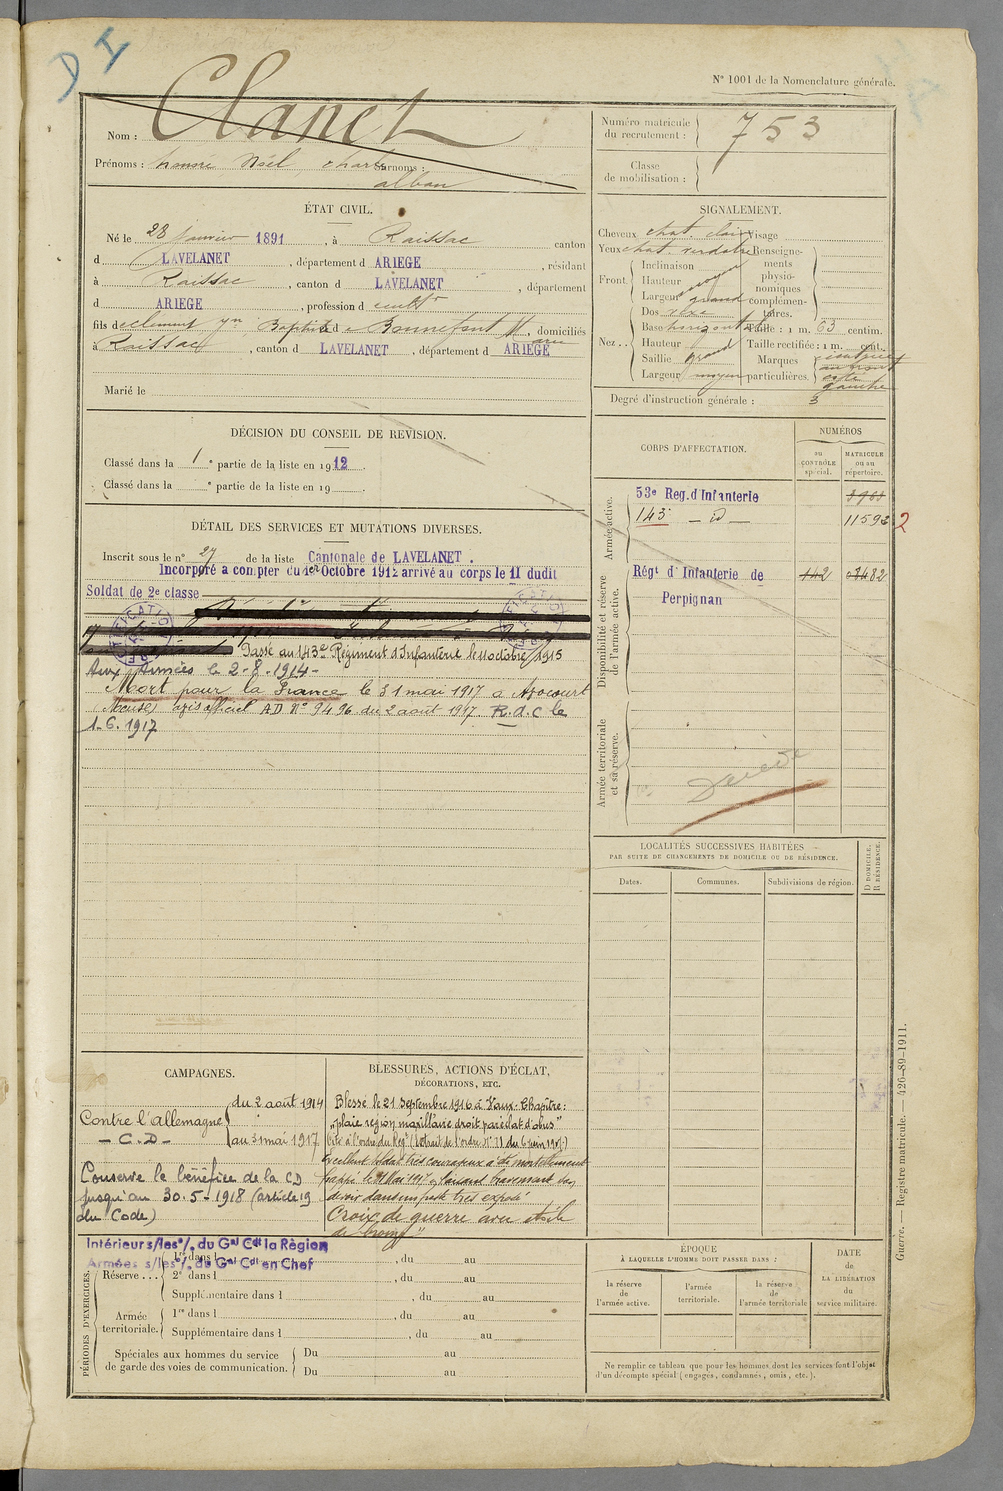 D I
N° 1001 de la Nomenclature générale.
Nom : Clanet
Prénoms : Noël, Charles Surnoms :
alban
Numéro matricule du recrutement : 753
Classe de mobilisation :
ÉTAT CIVIL.
Né le 28 janvier 1891, à Raissac canton
d LAVELANET, département d ARIEGE, résidant
à Raissac, canton d LAVELANET, département
d ARIEGE, profession d cultr
fils de clément Baptiste et d e Bonnefont M, domiciliés
à Raissac, canton d LAVELANET, département d ARIEGE
Marié le
SIGNALEMENT.
Cheveux chat. clair Visage
Yeux chat. verdatre Renseignements physionomiques complémentaires.
Front. Inclinaison
Hauteur moyen
Largeur grand
Nez.. Dos vexe
Base horizont Taille : 1 m. 63 centim.
Hauteur Taille rectifiée : 1 m. cent.
Saillie grand Marques particulières. cicatrice
au front
coté
gauche
Largeur moyen
Degré d'instruction générale : 3
DÉCISION DU CONSEIL DE REVISION.
Classé dans la 1 e partie de la liste en 1912.
Classé dans la e partie de la liste en 19
DÉTAIL DES SERVICES ET MUTATIONS DIVERSES.
Inscrit sous le n° 27 de la liste Cantonale de LAVELANET.
Incorporé a compter du 1er Octobre 1912 arrivé au corps le 11 dudit
Soldat de 2e classe
Passé au 143e Régiment d'Infanterie le 11 octobre 1915
Aux Armées le 2-8-1914-
Mort pour la France le 31 mai 1917 a Avocourt
(Meuse) avis officiel AD N° 9496 du 2 août 1917 R.d.C le
1-6.1917
CORPS D'AFFECTATION.
NUMÉROS
au CONTRÔLE spécial.
MATRICULE ou au répertoire.
Armée active.
53e Reg. d'Infanterie
143 - d° - 11592 2
Disponibilité et réserve de l'armée active.
Régt d'Infanterie de 142
Perpignan
Armée territoriale et sa réserve.
LOCALITÉS SUCCESSIVES HABITÉES
PAR SUITE DE CHANGEMENTS DE DOMICILE OU DE RÉSIDENCE.
Dates. Communes. Subdivisions de région. D DOMICILE. R RÉSIDENCE.
CAMPAGNES.
Contre l'Allemagne du 2 août 1914
- C.D - au 31 mai 1917
Conserve le bénéfice de la CD
jusqu'au 30.5-1918 (article 19
du Code)
BLESSURES, ACTIONS D'ÉCLAT,
DÉCORATIONS, ETC.
Blessé le 21 Septembre 1916 à Vaux-Chapitre :
"plaie région maxillaire droit par éclat d'obus"
Cité à l'ordre du Regt (Extrait de l'ordre N° 71 du 6 juin 1917.)
Excellent soldat très courageux a été mortellement
frappé le 31 Mai 1917 en faisant bravement son
devoir dans un poste très exposé
Croix de guerre avec étoile
de bronze"
PÉRIODES D'EXERCICES.
Intérieur s/les °/. du Gal Cdt la Règion
Armées s/les °/. du Gal Cdt en Chef
Réserve... 1re dans l , du au
2e dans l , du au
Supplémentaire dans l , du au
Armée territoriale. 1re dans l , du au
Supplémentaire dans l , du au
Spéciales aux hommes du service de garde des voies de communication. Du au
Du au
ÉPOQUE
À LAQUELLE L'HOMME DOIT PASSER DANS :
la réserve de l'armée active.
l'armée territoriale.
la réserve de l'armée territoriale
DATE de LA LIBÉRATION du service militaire.
Ne remplir ce tableau que pour les hommes dont les services font l'objet
d'un décompte spécial (engagés, condamnés, omis, etc.).
Guerre. — Registre matricule. — 426-89-1911.